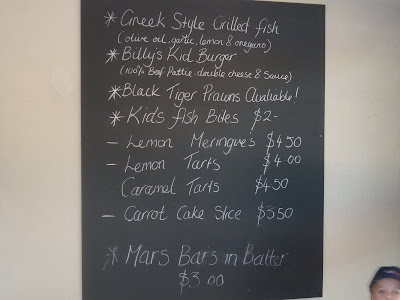 * Greek Style Grilled fish
(olive oil, garlic, lemon & oregano)
* Billy's Kid Burger
(100% Beef Pattie, double cheese & Sauce)
* Black Tiger Prawns Available!
* Kids fish Bites $2-
- Lemon Meringue's $4.50
- Lemon Tarts $4.00
Caramel Tarts $4.50
- Carrot Cake Slice $3.50
* Mars Bars in Batter
$3.00